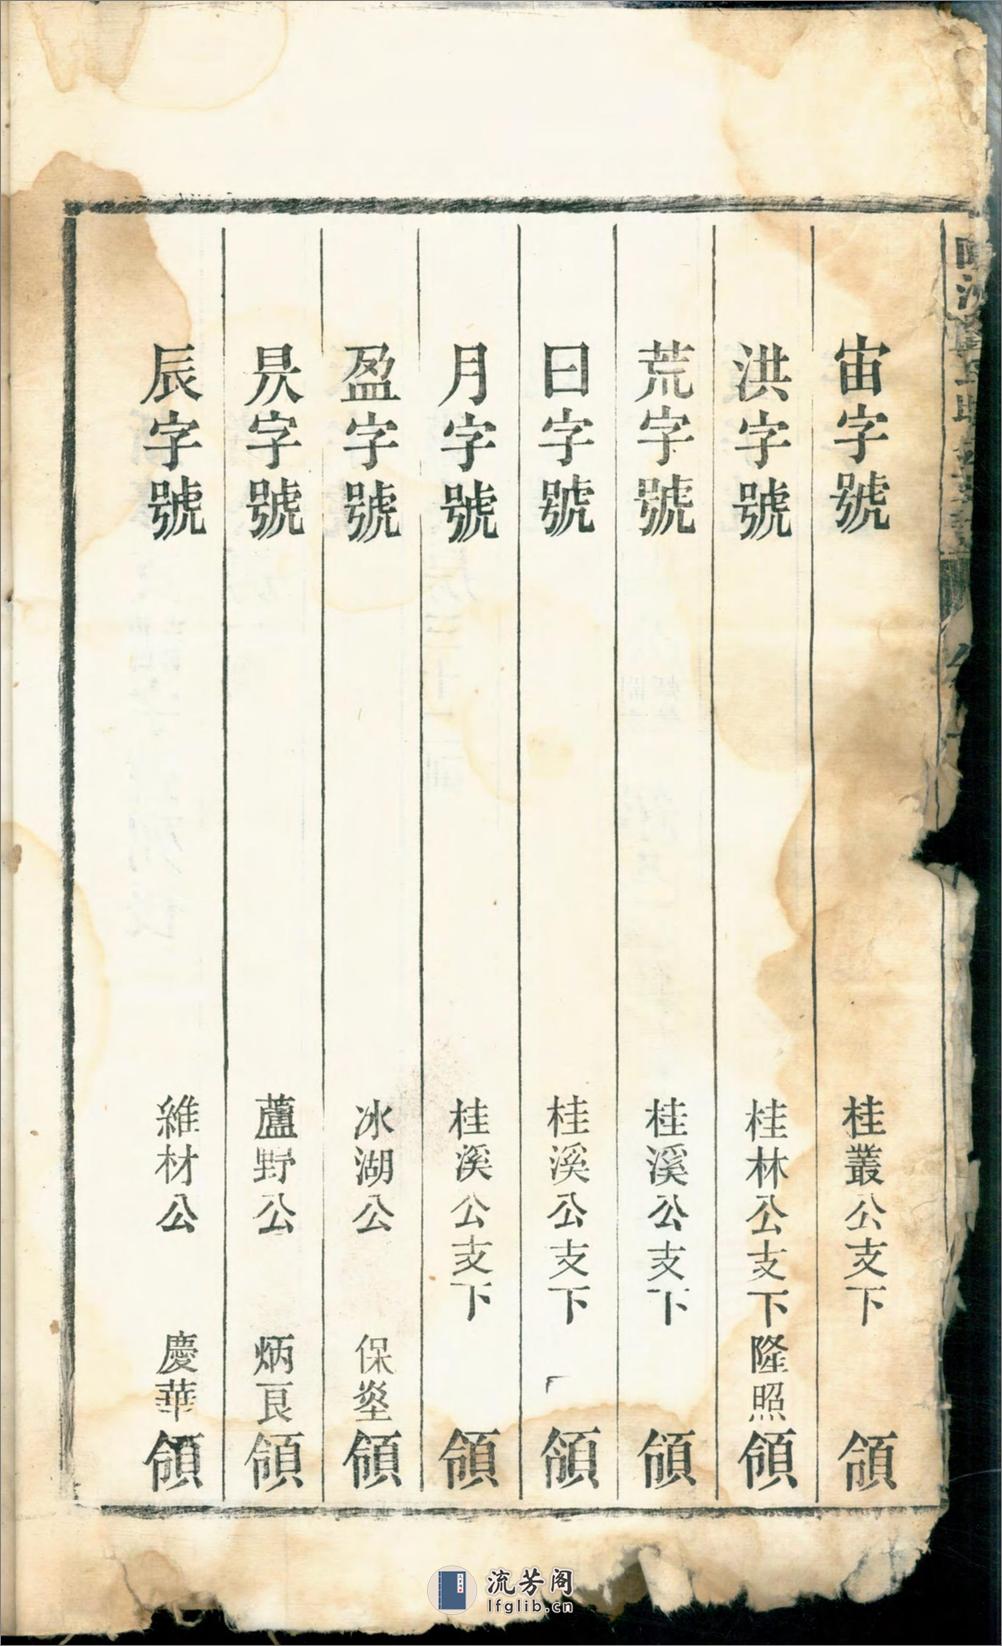 宙字號 桂叢公支下 領
洪字號 桂林公支下隆照領
荒字號 桂溪公支下 領
日字號 桂溪公支下 領
月字號 桂溪公支下 領
盈字號 冰湖公 保垐領
昃字號 蘆野公 炳良領
辰字號 維材公 慶華領
流芳阁
lfglib.cn